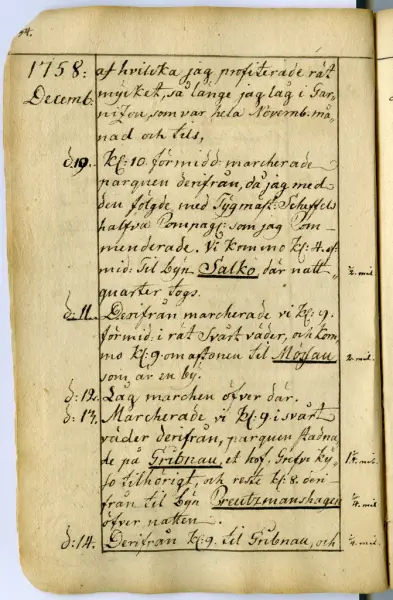 1758: af hvilcka jag profiterade rät
Decemb: mycket, så länge jag låg i Gar„
nizon, som var hela Novemb: må„
nad och tils,
d: 10. Kl: 10. förmidd: marcherade
parquen derifrån, då jag med
den fölgde med Tygmäst: Scheffels
halfva Compag: som jag Com„
menderade. Vi kommo kl: 4. ef„
mid: til byn Salkó, där natt„ 2. mil.
quarter togs.
d: 11. Derifrån marcherade vi kl: 9.
förmid: i rät Svårt väder, och kom„
mo kl: 9. om aftonen til Möslau 2. mil.
som är en by.
d: 12. Låg marchen öfver där.
d: 13. Marcherade vi kl: 9 i svårt
väder derifrån, parquen stadna„
de på Gribnau, et hof, Grefve Ky„
so tilhörigt, och reste kl: 8. deri„
från til byn Preutzmanshagen
öfver natten.
d: 14. Derifrån kl: 9. til Gribnau, och